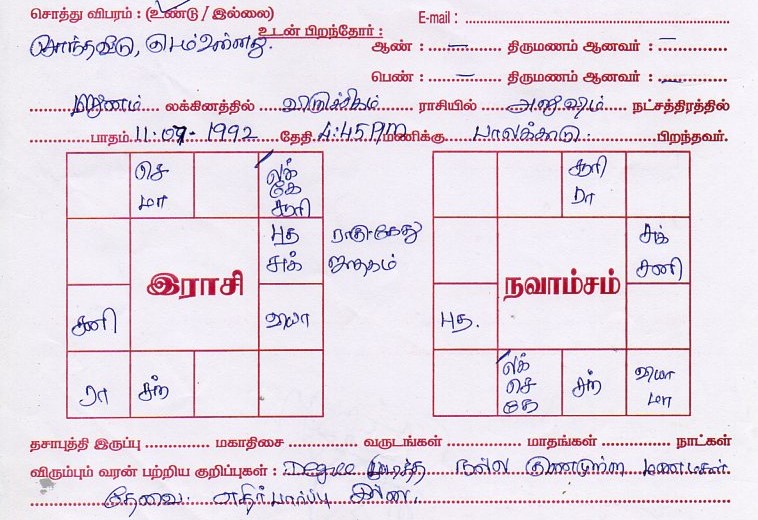 சொத்து விபரம் : (உண்டு / இல்லை)
E-mail :
உடன் பிறந்தோர் :
சொந்தவீடு,
ஆண் : – திருமணம் ஆனவர் : –
பெண் : – திருமணம் ஆனவர் : –
மிதுனம் லக்கினத்தில் விருச்சிகம் ராசியில் அனுஷம் நட்சத்திரத்தில்
பாதம் 11-07-1992 தேதி 4:45 PM மணிக்கு பாலக்காடு. பிறந்தவர்.
செ
மா
லக்
கே
சூரி
புத
சுக்
ராகு-கேது
ஜாதகம்
இராசி
சனி
வியா
ரா
சந்
சூரி
ரா
சுக்
சனி
நவாம்சம்
புத.
லக்
செ
கே
சந்
வியா
மா
தசாபுத்தி இருப்பு மகாதிசை வருடங்கள் மாதங்கள் நாட்கள்
விரும்பும் வரன் பற்றிய குறிப்புகள் : Degree படித்த நல்ல குணமுள்ள மணமகன்
தேவை. எதிர்பார்ப்பு இல்லை.